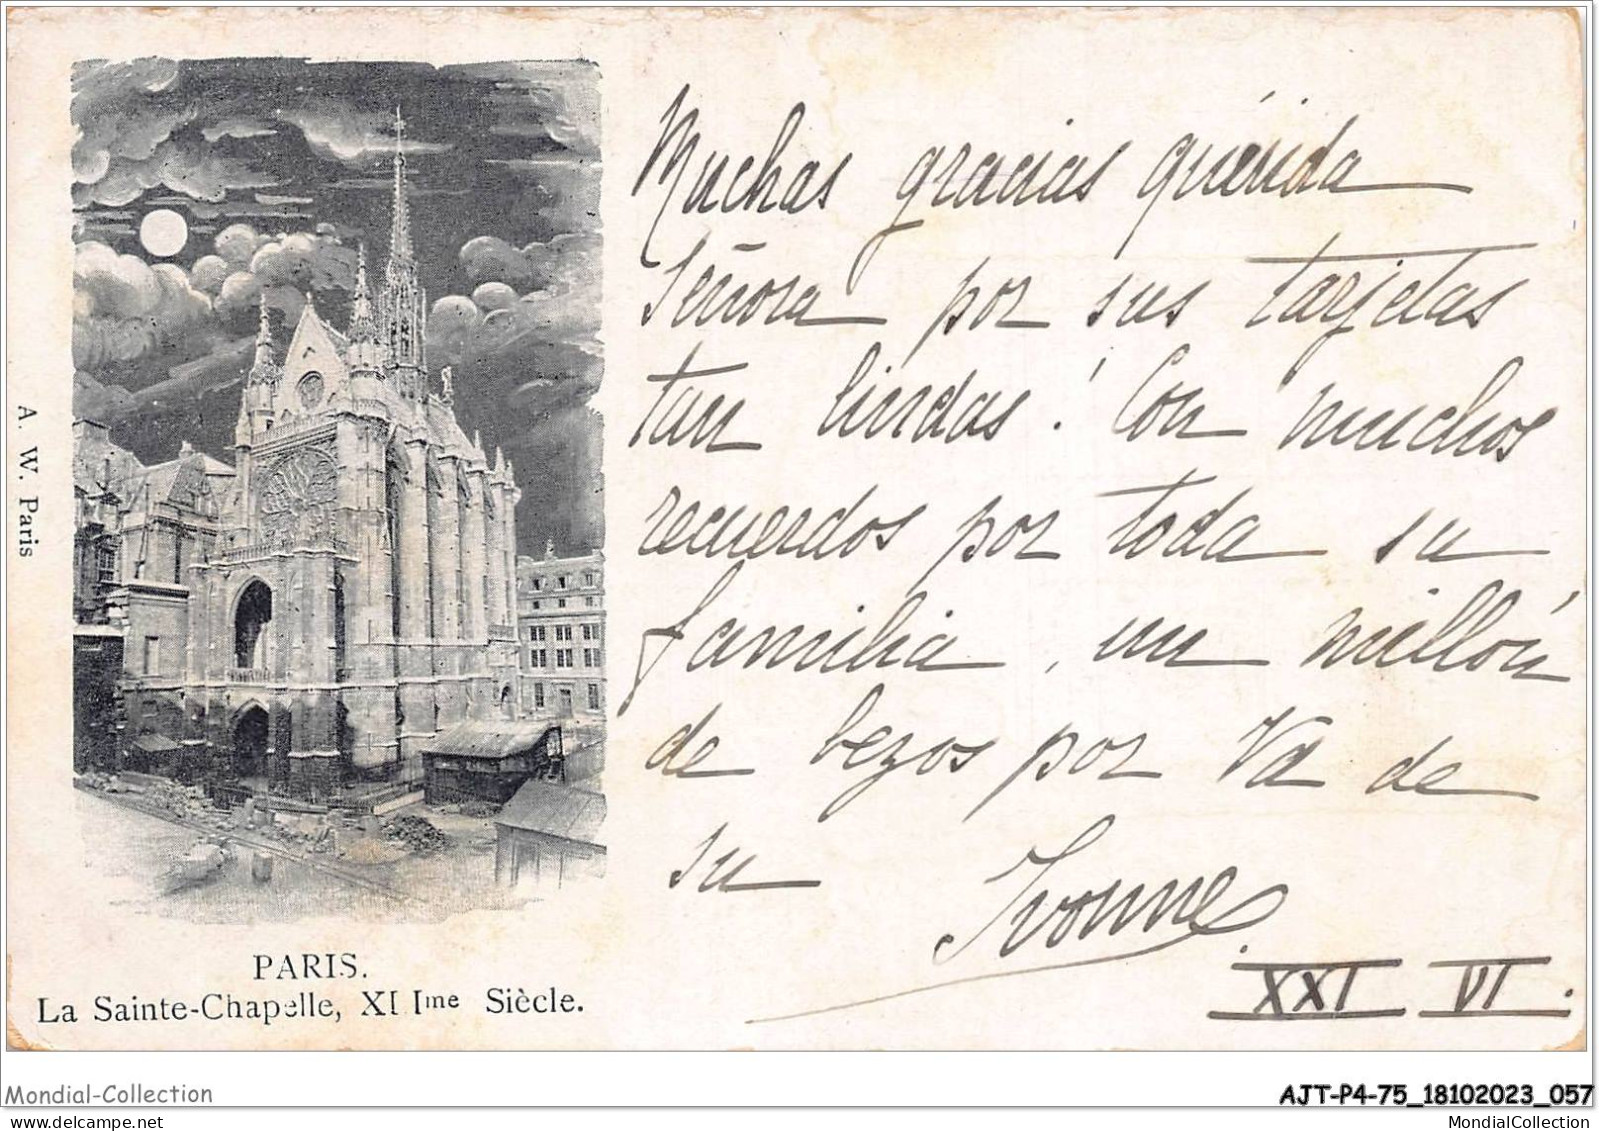 A. W. Paris
PARIS.
La Sainte-Chapelle, XIIIme Siècle.
Muchas gracias quérida
Señora por sus tarjetas
tan lindas! Con muchos
recuerdos por toda su
familia, un millón
de bezos por Va de
su Ivonne.
XXI VI.
Mondial-Collection
AJT-P4-75_18102023_057
www.delcampe.net
MondialCollection